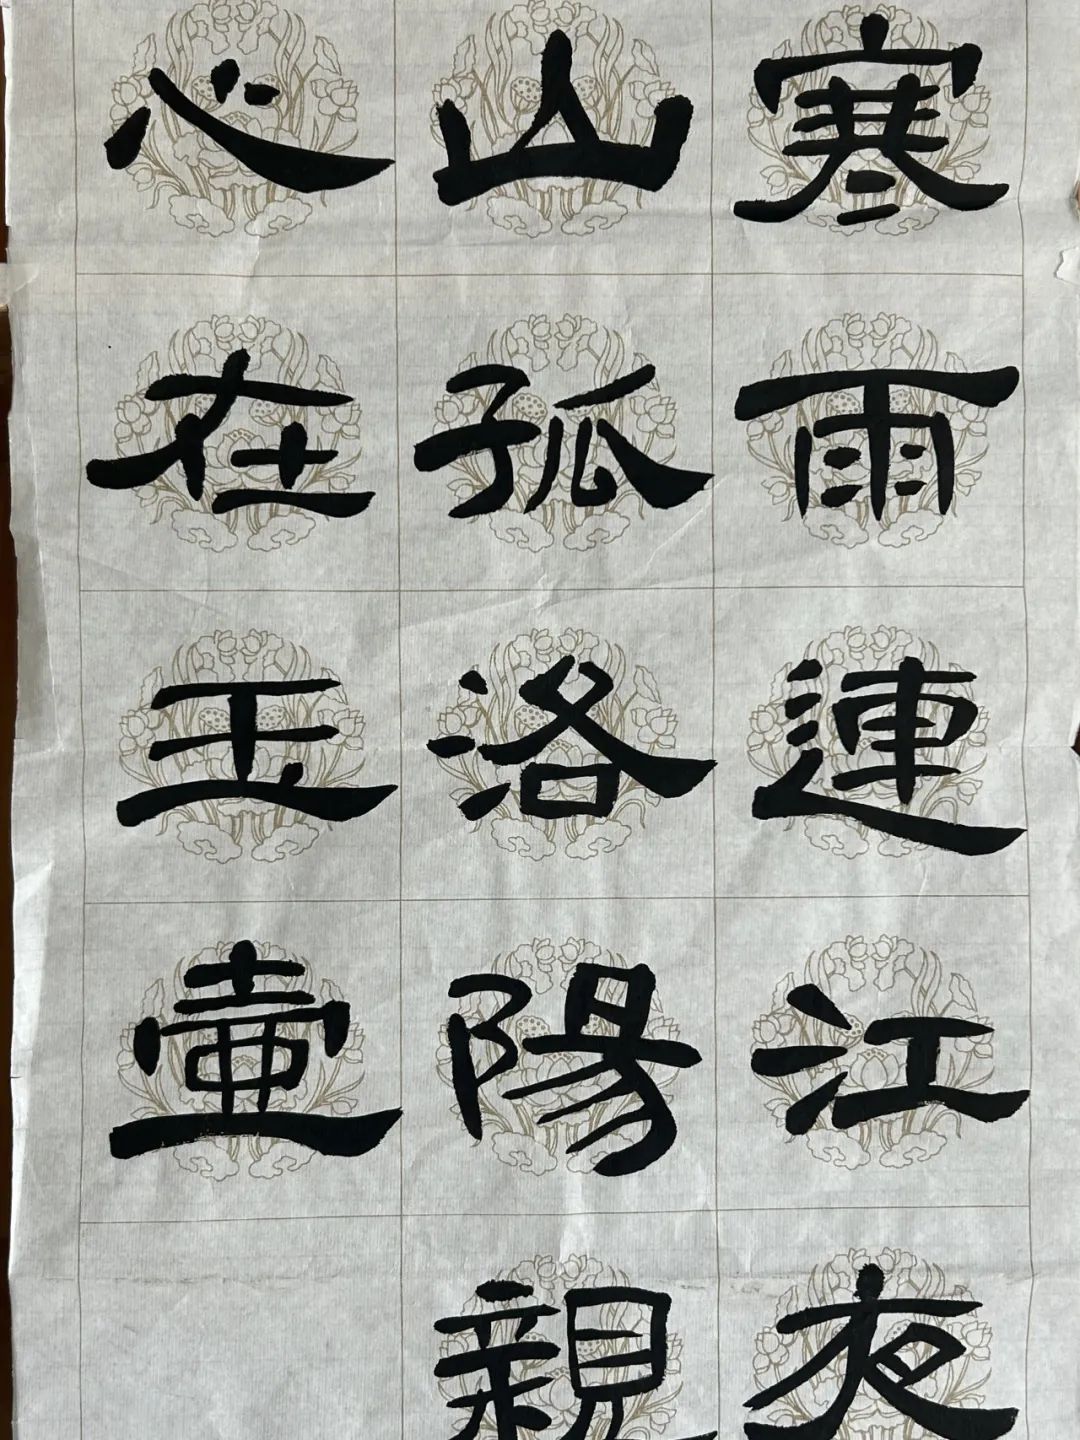 寒雨連江夜
山孤洛陽親
心在玉壷